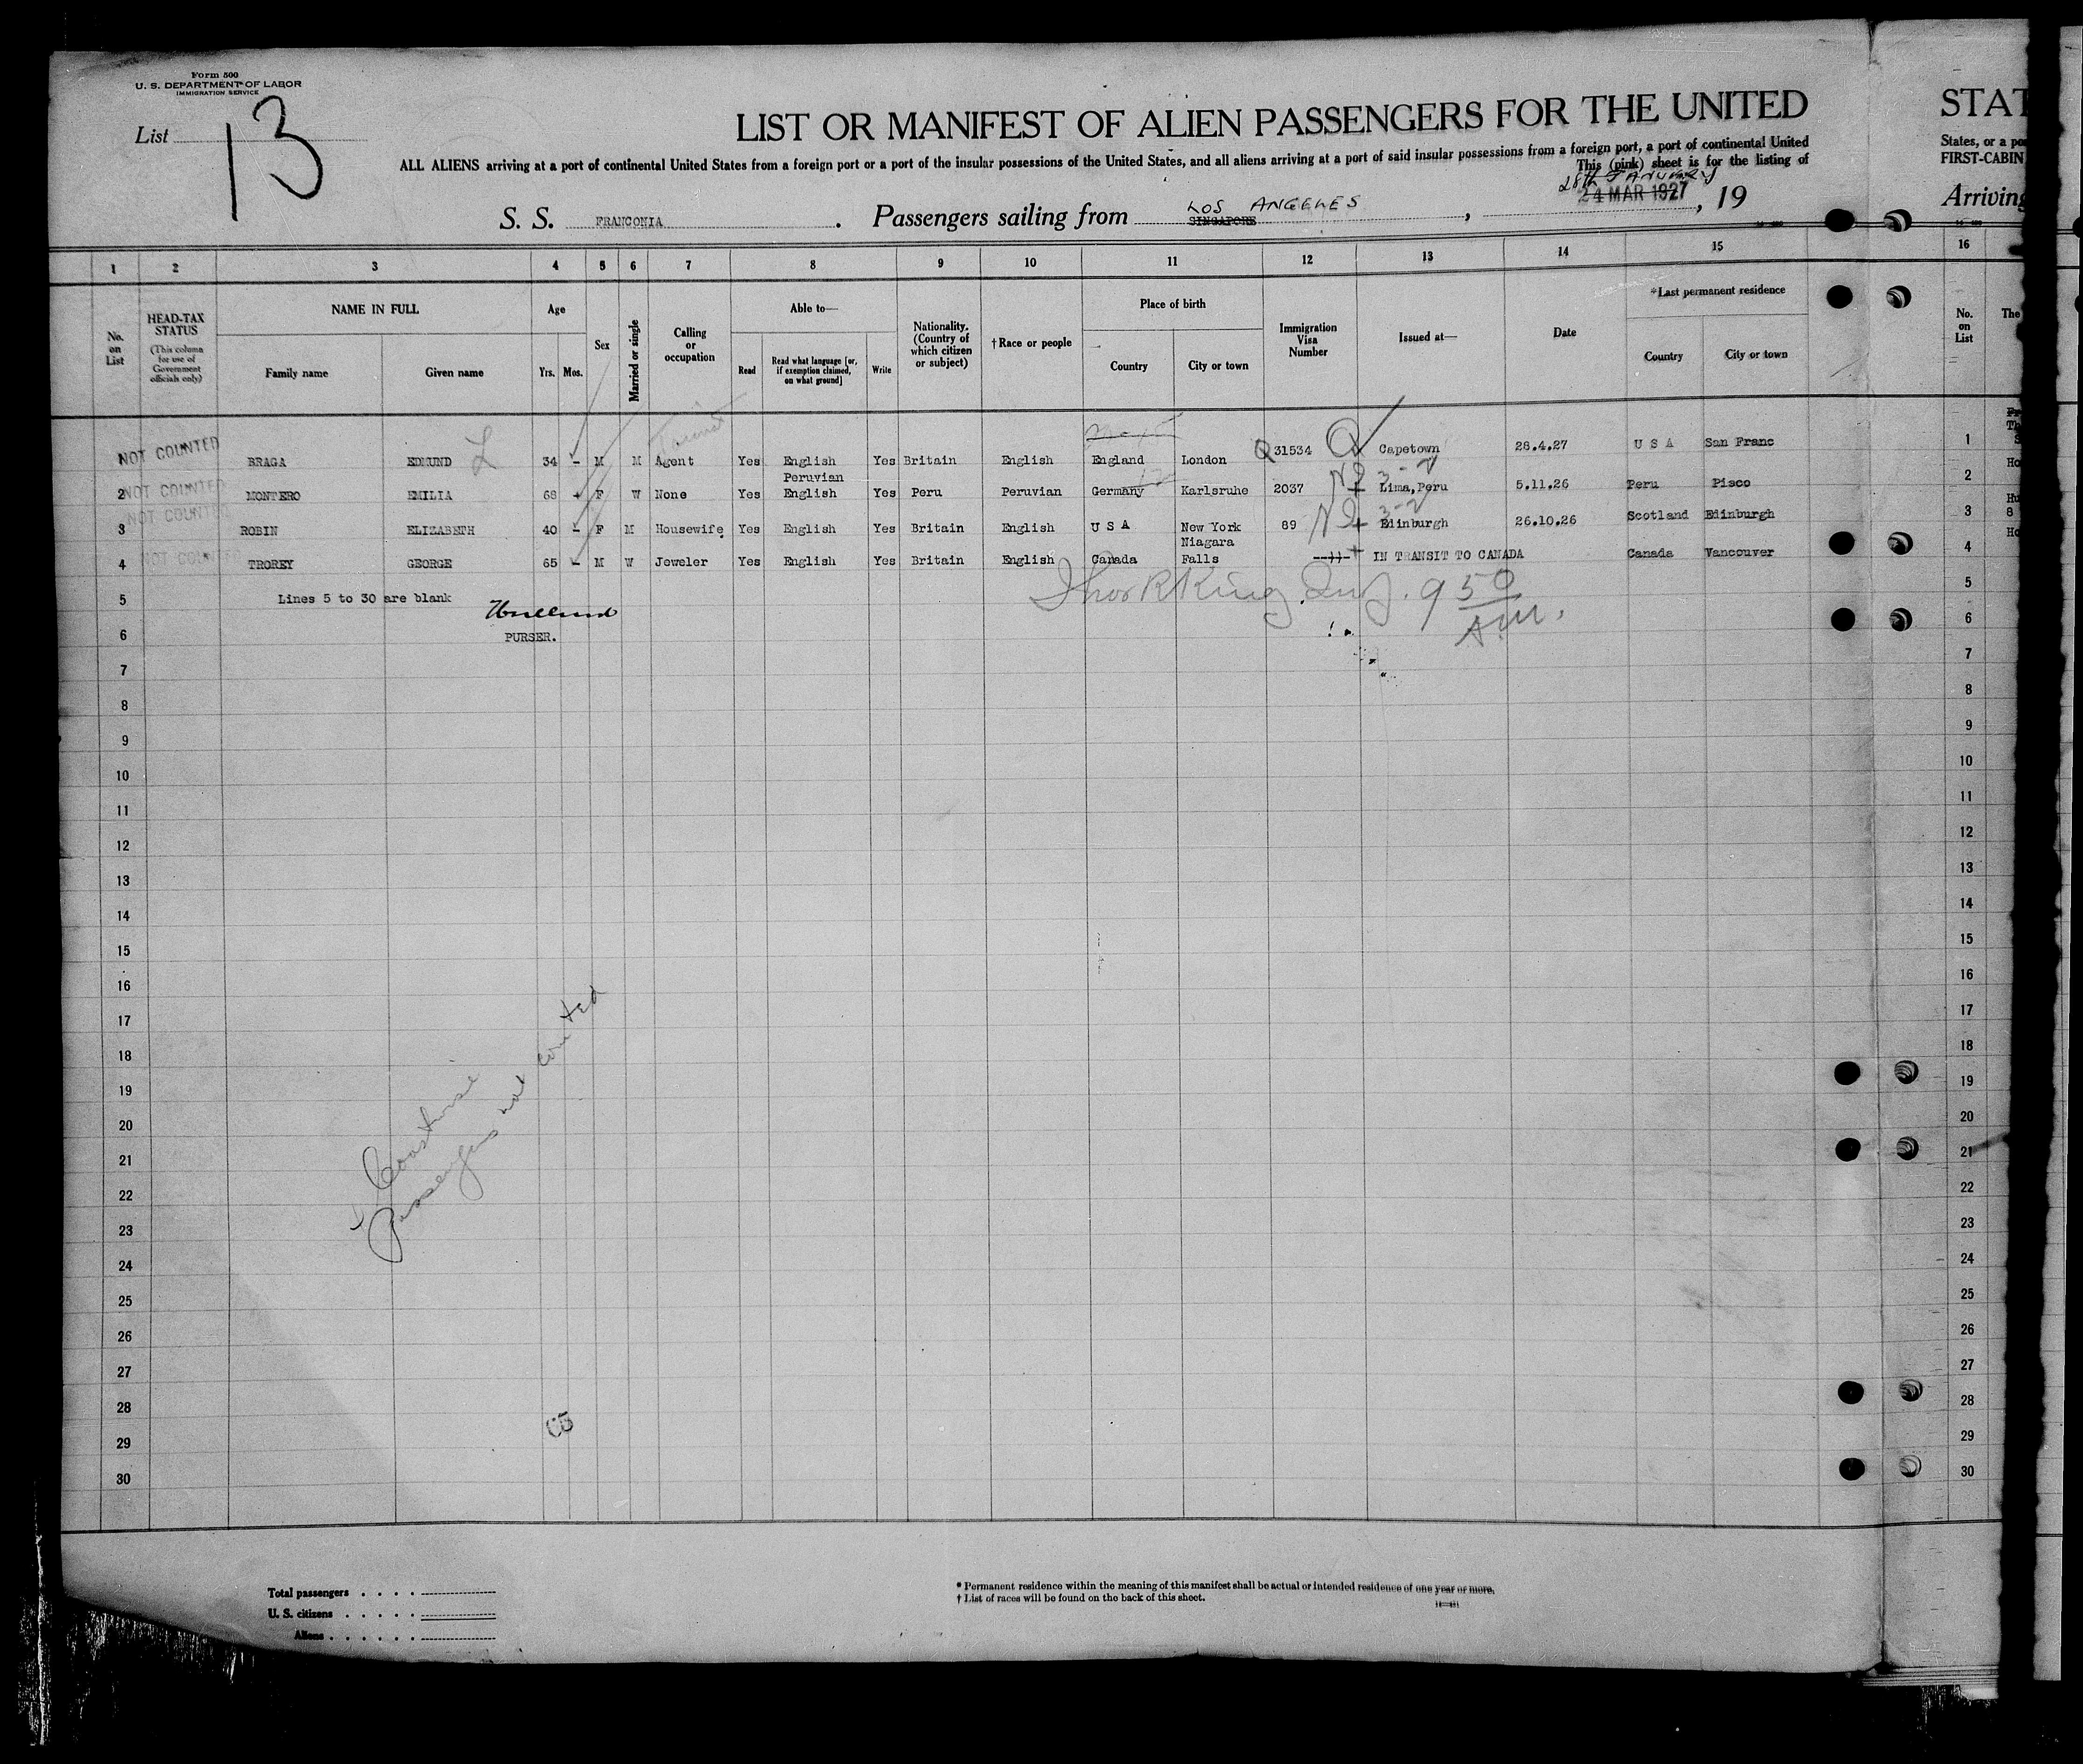 Form 500
U. S. DEPARTMENT OF LABOR
IMMIGRATION SERVICE
List 13
LIST OR MANIFEST OF ALIEN PASSENGERS FOR THE UNITED
ALL ALIENS arriving at a port of continental United States from a foreign port or a port of the insular possessions of the United States, and all aliens arriving at a port of said insular possessions from a foreign port, a port of continental United
This (pink) sheet is for the listing of
28th JANUARY
S. S. FRANCONIA . Passengers sailing from LOS ANGELES SINGAPORE , 24 MAR 1927 , 19
STAT
States, or a po
FIRST-CABIN
Arriving
1 2 3 4 5 6 7 8 9 10 11 12 13 14 15 16
No. on List
HEAD-TAX STATUS
(This column for use of Government officials only)
NAME IN FULL
Family name Given name
Age
Yrs. Mos.
Sex
Married or single
Calling or occupation
Able to—
Read Read what language [or, if exemption claimed, on what ground] Write
Nationality. (Country of which citizen or subject)
†Race or people
Place of birth
Country City or town
Immigration Visa Number
Issued at—
Date
*Last permanent residence
Country City or town
No. on List
The
1 NOT COUNTED BRAGA EDMUND 34 - M M Agent Yes English Yes Britain English England London Q 31534 Q Capetown 28.4.27 U S A San Franc 1
Tourist
2 NOT COUNTED MONTERO EMILIA 68 F W None Yes Peruvian English Yes Peru Peruvian Germany Karlsruhe 2037 3-2 Lima,Peru 5.11.26 Peru Pisco 2
3 NOT COUNTED ROBIN ELIZABETH 40 - F M Housewife Yes English Yes Britain English U S A New York 89 3-2 Edinburgh 26.10.26 Scotland Edinburgh 3
4 NOT COUNTED TROREY GEORGE 65 - M W Jeweler Yes English Yes Britain English Canada Niagara Falls IN TRANSIT TO CANADA Canada Vancouver 4
5 Lines 5 to 30 are blank 5
6 PURSER. 6
Thos R King Insp. 9 50 AM.
7 7
8 8
9 9
10 10
11 11
12 12
13 13
14 14
15 15
16 16
17 17
18 18
19 19
20 20
21 21
22 22
23 23
24 24
25 25
26 26
27 27
28 28
29 29
30 30
Coastwise
passengers not counted
Total passengers . . . .
U. S. citizens . . . . .
Aliens . . . . . .
* Permanent residence within the meaning of this manifest shall be actual or intended residence of one year or more.
† List of races will be found on the back of this sheet.